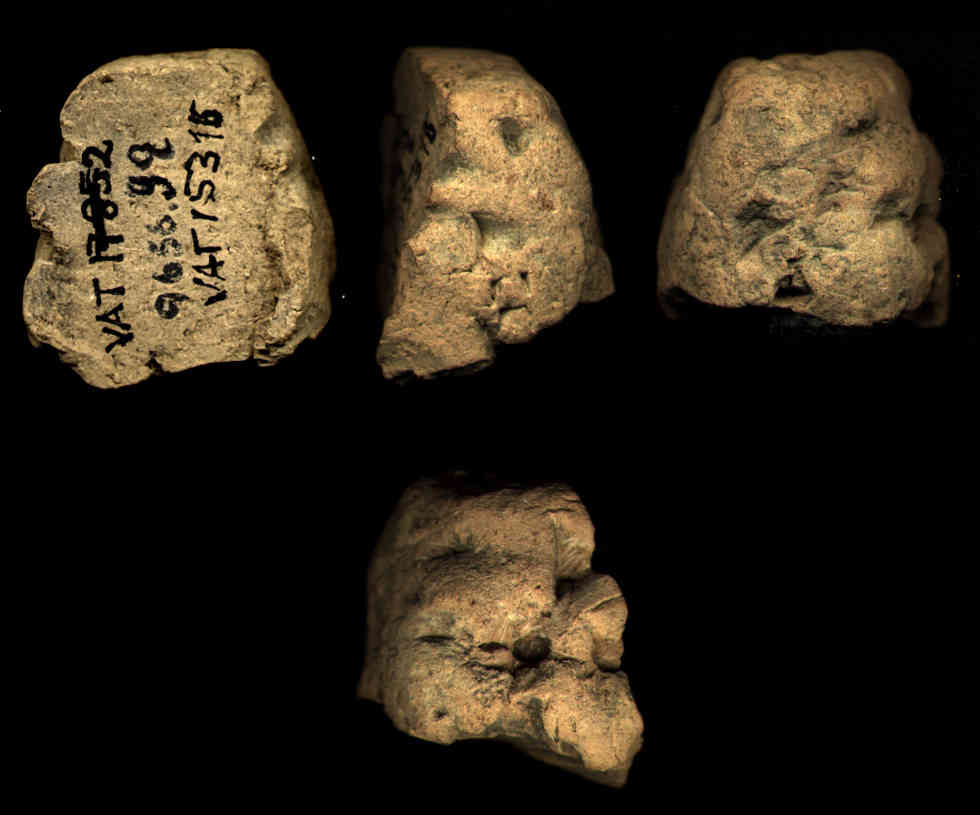 VAT 17852
9656.gq
VAT 15316